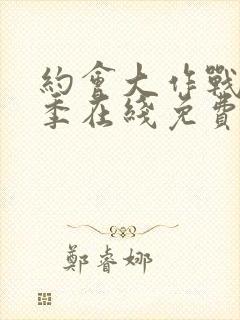 約會大作戰
季在綫免費
鄭睿娜